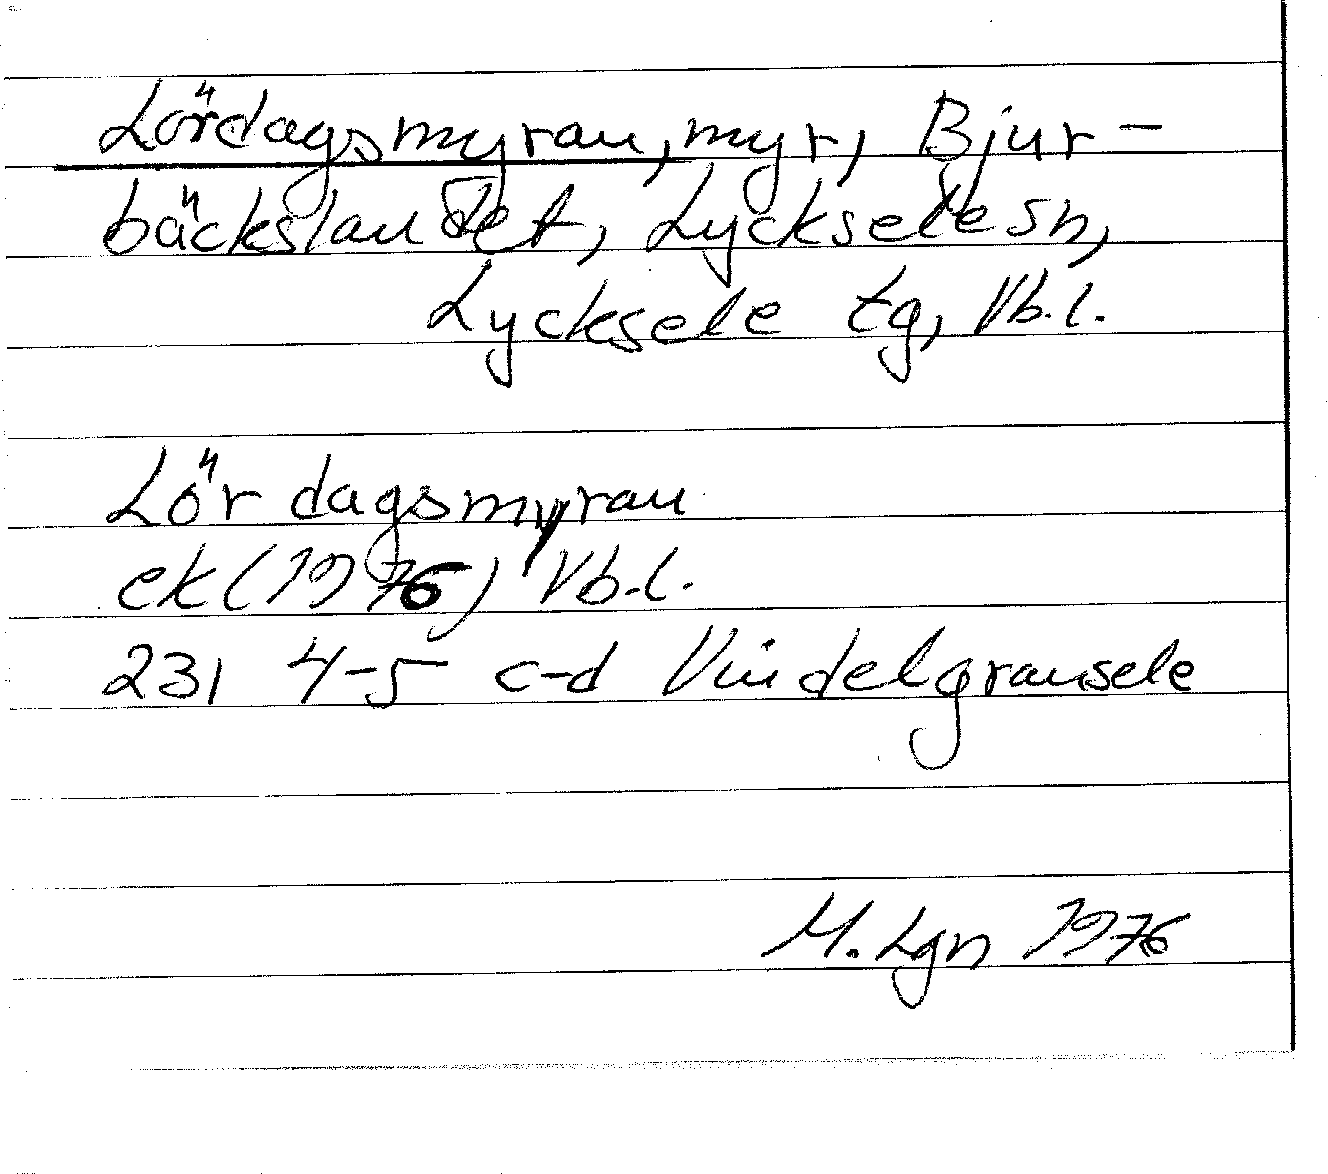 Lördagsmyran, myr, Bjur-
bäckslandet, Lycksele sn,
Lycksele tg, Vb.l.
Lördagsmyran
ek (1976) Vb.l.
231 4-5 c-d Vindelgransele
M. Lgn 1976